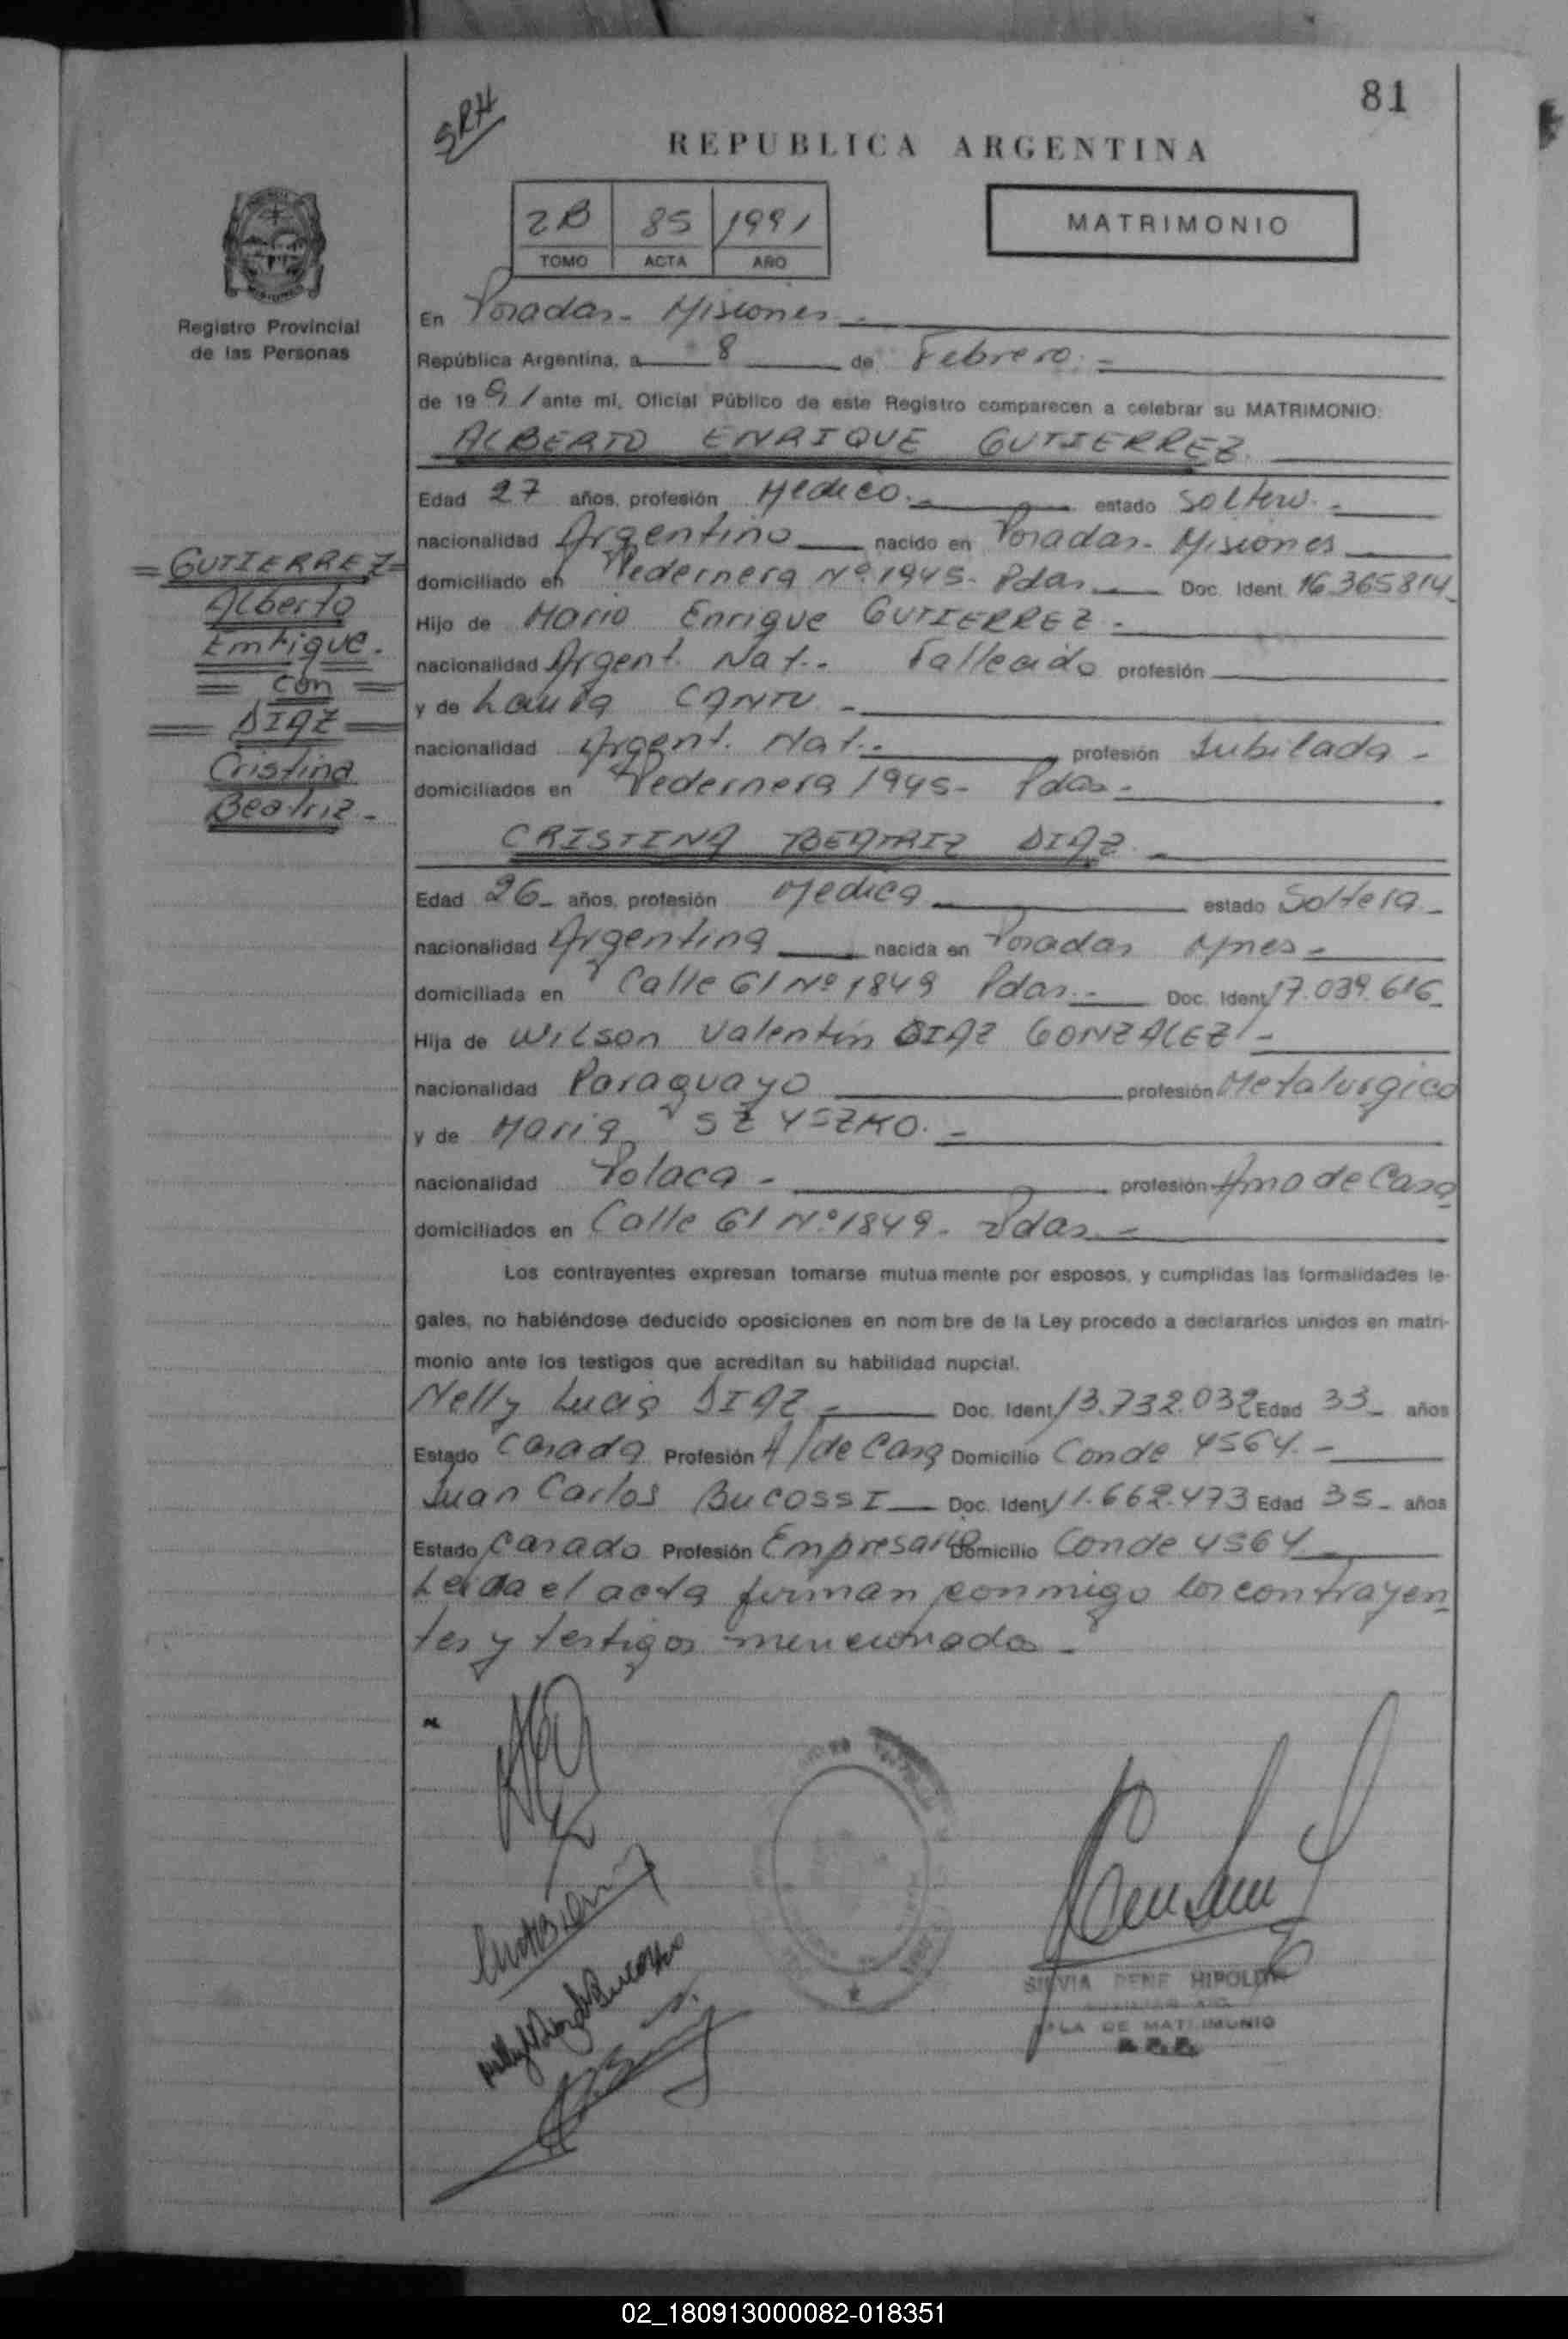 81
SRH
REPUBLICA ARGENTINA
2B 85 1991
TOMO ACTA AÑO
MATRIMONIO
Registro Provincial
de las Personas
En Posadas - Misiones -
República Argentina, a 8 de Febrero. -
de 1991 ante mí, Oficial Público de este Registro comparecen a celebrar su MATRIMONIO:
ALBERTO ENRIQUE GUTIERREZ.
Edad 27 años, profesión Medico. - estado Soltero. -
nacionalidad Argentino nacido en Posadas - Misiones
domiciliado en Pedernera Nº 1945 - Pdas Doc. Ident. 16.365814
Hijo de Mario Enrique GUTIERREZ -
nacionalidad Argent. Nat.. Fallecido profesión
y de Laura CANTU -
nacionalidad Argent. Nat.. profesión Jubilada -
domiciliados en Pedernera 1945 - Pdas -
= GUTIERREZ =
Alberto
Enrique.
= con =
= DIAZ =
Cristina
Beatriz -
CRISTINA BEATRIZ DIAZ. -
Edad 26 - años, profesión Medica estado Soltera -
nacionalidad Argentina nacida en Posadas Mnes -
domiciliada en Calle 61 Nº 1849 Pdas. - Doc. Ident. 17.039.616
Hija de Wilson Valentín DIAZ GONZALEZ -
nacionalidad Paraguayo profesión Metalurgico
y de Maria SZYSZKO. -
nacionalidad Polaca - profesión Ama de Casa
domiciliados en Calle 61 Nº 1849 - Pdas. -
Los contrayentes expresan tomarse mutua mente por esposos, y cumplidas las formalidades le-
gales, no habiéndose deducido oposiciones en nom bre de la Ley procedo a declararlos unidos en matri-
monio ante los testigos que acreditan su habilidad nupcial.
Nelly Lucia DIAZ - Doc. Ident. 13.732.032 Edad 33 - años
Estado Casada Profesión A/de Casa Domicilio Conde 4564 -
Juan Carlos BUCOSSI Doc. Ident. 11.662.473 Edad 35 - años
Estado Casado Profesión Empresario Domicilio Conde 4564
Leida el acta firman conmigo los contrayen
tes y testigos mencionados -
SILVIA RENE HIPOLITO
SALA DE MATRIMONIO
02_180913000082-018351